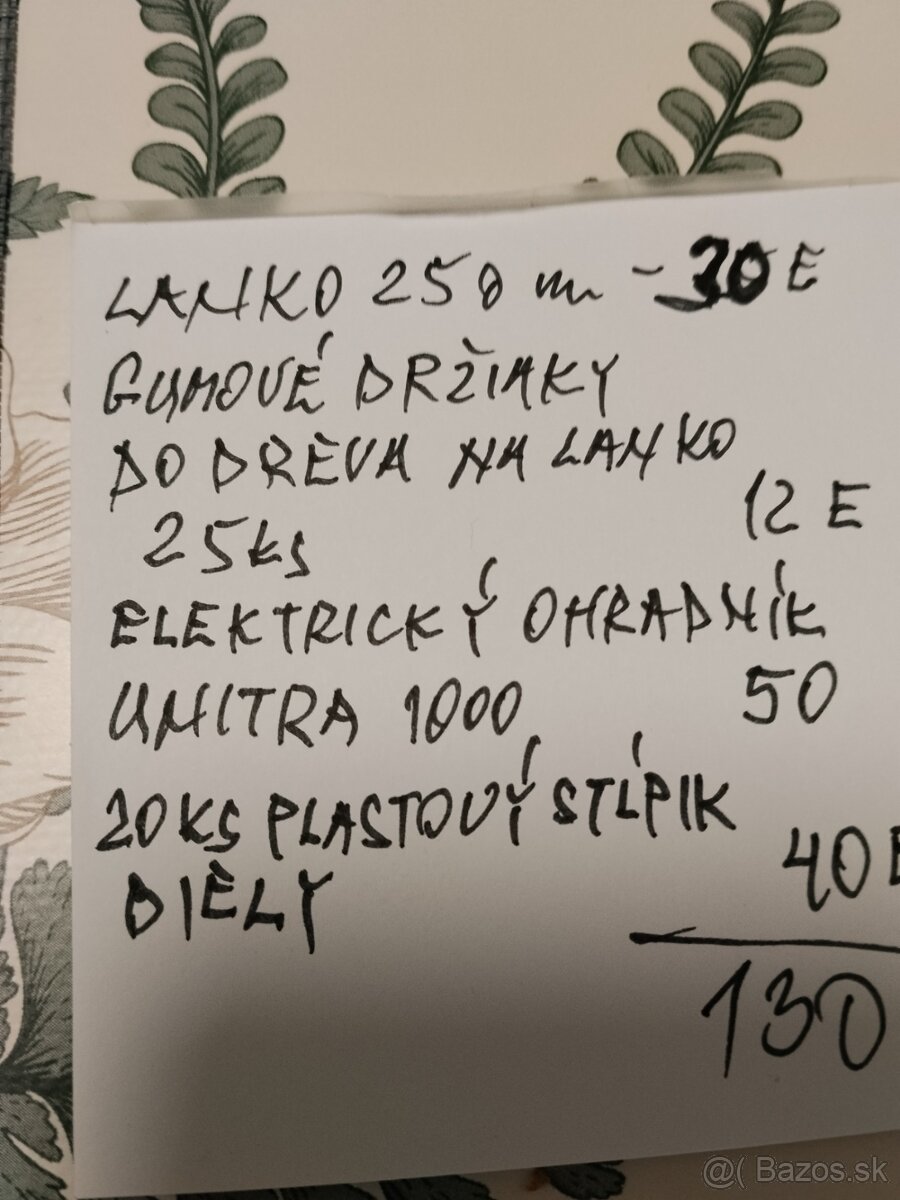 LANKO 250 m - 30 E
GUMOVÉ DRŽIAKY
DO DREVA NA LANKO
25ks
12 E
ELEKTRICKÝ OHRADNÍK
UNITRA 1000
50
20KS PLASTOVÝ STĹPIK
BIELY
40 E
130
@( Bazos.sk